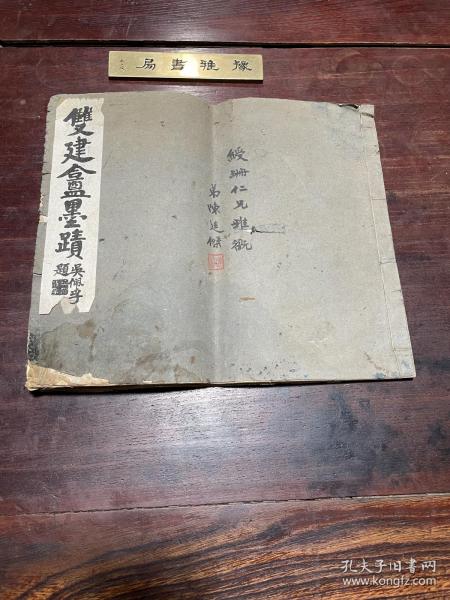 豫雅書局
雙建盦墨蹟
吳佩孚
題
綬珊仁兄雅玩
弟陳廷傑
孔夫子旧书网
www.kongfz.com